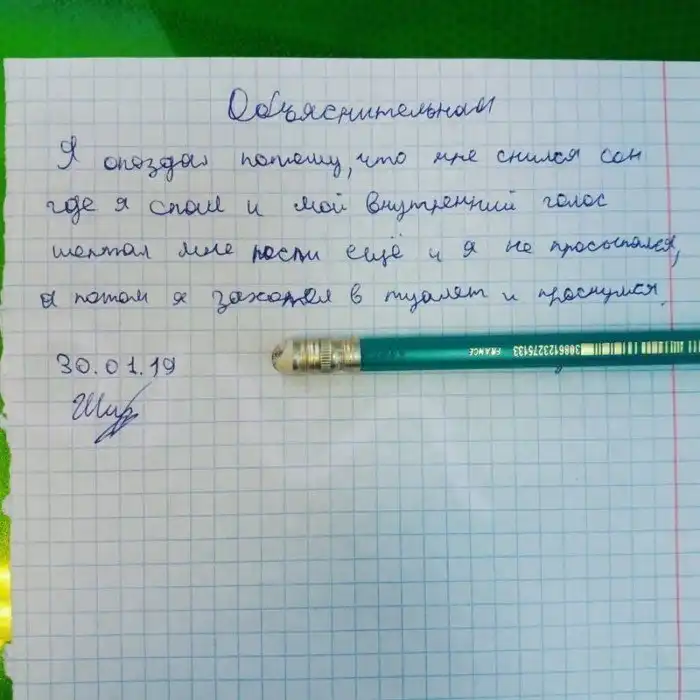 Объяснительная
Я опоздал потому, что мне снился сон
где я спал и мой внутренний голос
шептал мне поспи ещё и я не просыпался,
а потом я захотел в туалет и проснулся.
30.01.19
FRANCE 3086123275133